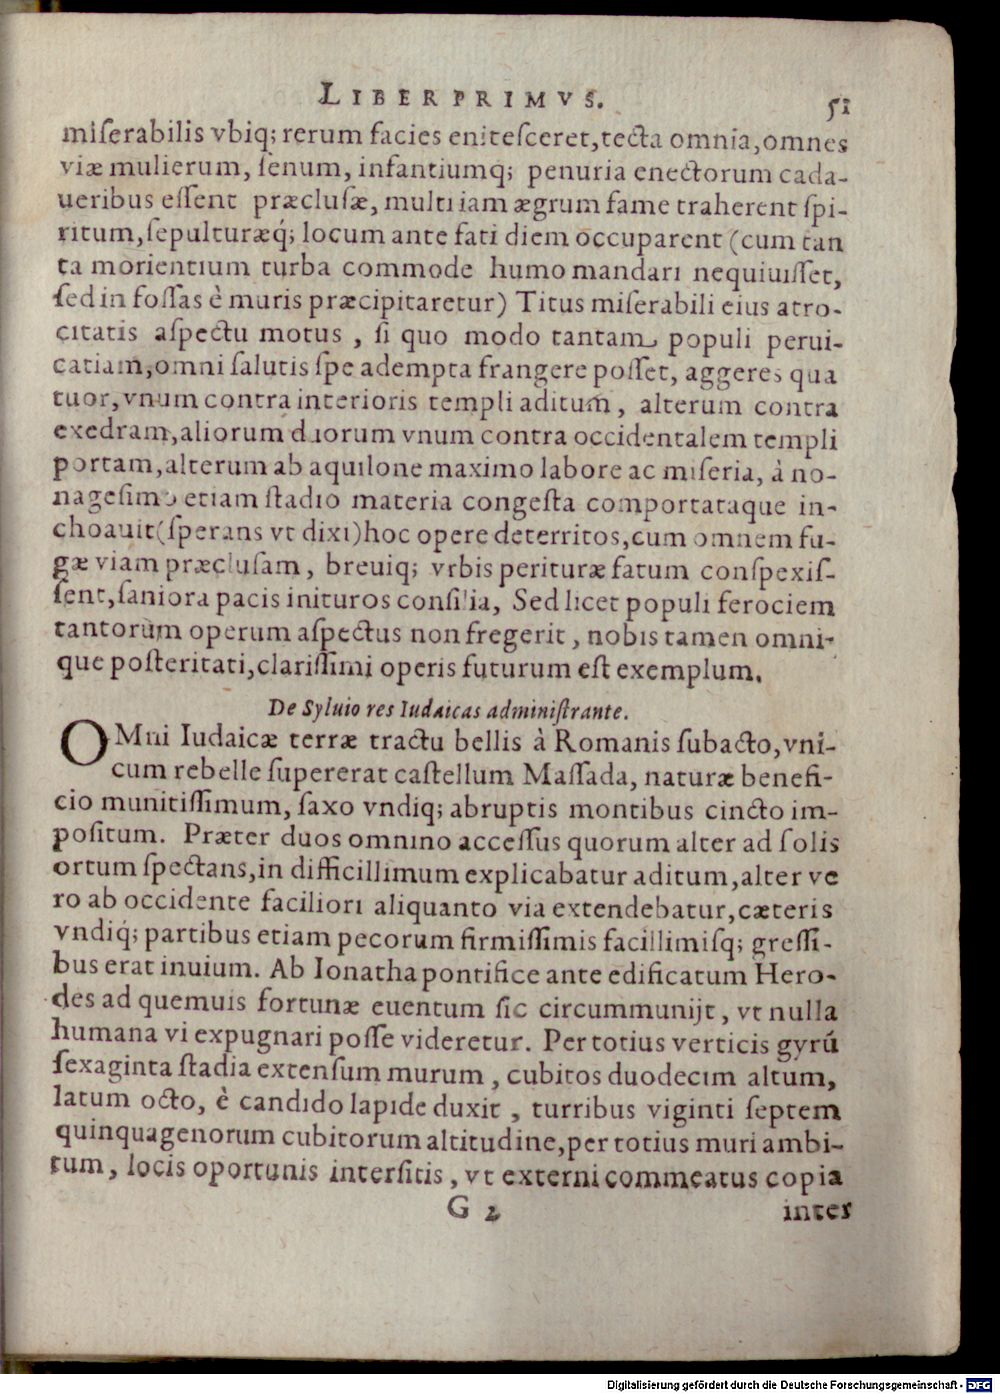 LIBER PRIMVS. 51
miſerabilis vbiq; rerum facies eniteſceret, tecta omnia, omnes
viæ mulierum, ſenum, infantiumq; penuria enectorum cada-
ueribus eſſent præcluſæ, multi iam ægrum fame traherent ſpi-
ritum, ſepulturæq́; locum ante fati diem occuparent (cum tan
ta morientium turba commode humo mandari nequiuiſſet,
ſed in foſſas è muris præcipitaretur) Titus miſerabili eius atro-
citatis aſpectu motus, ſi quo modo tantam populi perui-
catiam, omni ſalutis ſpe adempta frangere poſſet, aggeres qua
tuor, vnum contra interioris templi aditum, alterum contra
exedram, aliorum duorum vnum contra occidentalem templi
portam, alterum ab aquilone maximo labore ac miſeria, à no-
nageſimo etiam ſtadio materia congeſta comportataque in-
choauit (ſperans vt dixi) hoc opere deterritos, cum omnem fu-
gæ viam præcluſam, breuiq; vrbis perituræ fatum conſpexiſ-
ſent, ſaniora pacis inituros conſilia, Sed licet populi ferociem
tantorum operum aſpectus non fregerit, nobis tamen omni-
que poſteritati, clariſſimi operis futurum eſt exemplum.
De Syluio res Iudaicas adminiſtrante.
OMni Iudaicæ terræ tractu bellis à Romanis ſubacto, vni-
cum rebelle ſupererat caſtellum Maſſada, naturæ benefi-
cio munitiſſimum, ſaxo vndiq; abruptis montibus cincto im-
poſitum. Præter duos omnino acceſſus quorum alter ad ſolis
ortum ſpectans, in difficillimum explicabatur aditum, alter ve
ro ab occidente faciliori aliquanto via extendebatur, cæteris
vndiq́; partibus etiam pecorum firmiſſimis facillimiſq; greſſi-
bus erat inuium. Ab Ionatha pontifice ante edificatum Hero-
des ad quemuis fortunæ euentum ſic circummunijt, vt nulla
humana vi expugnari poſſe videretur. Per totius verticis gyrú
ſexaginta ſtadia extenſum murum, cubitos duodecim altum,
latum octo, è candido lapide duxit, turribus viginti ſeptem
quinquagenorum cubitorum altitudine, per totius muri ambi-
tum, locis oportunis interſitis, vt externi commeatus copia
G 2 inter
Digitalisierung gefördert durch die Deutsche Forschungsgemeinschaft - DFG